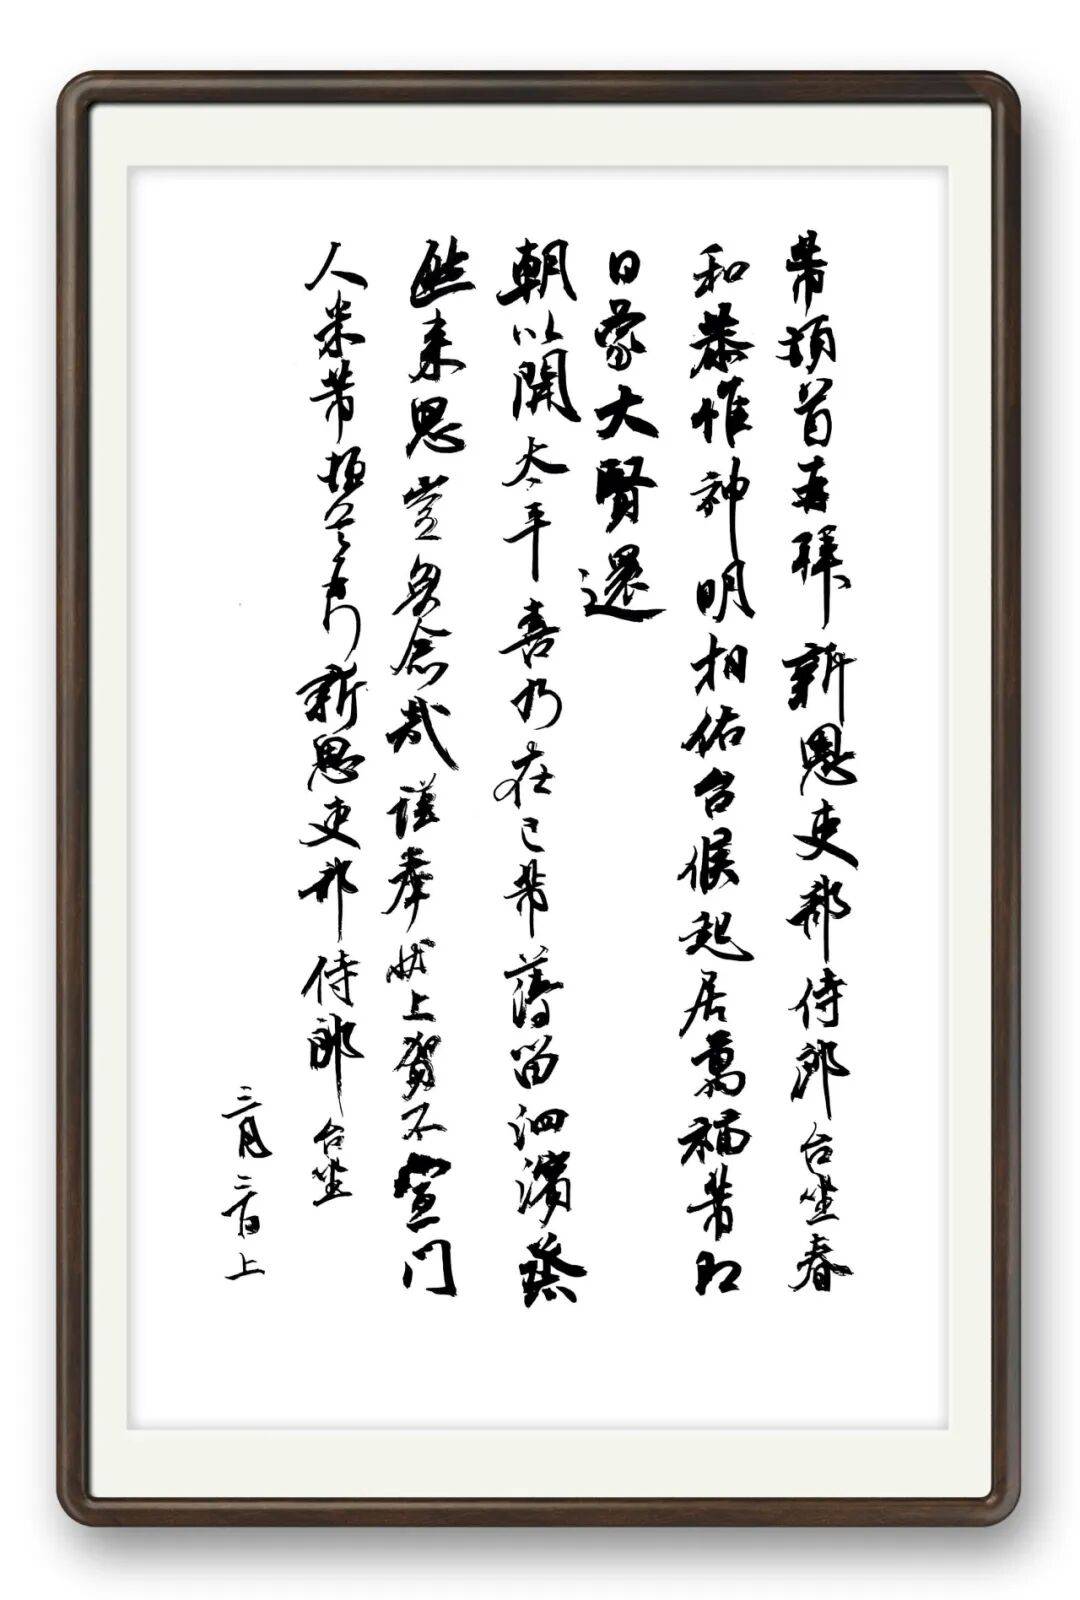 芾頓首再拜新恩吏部侍郎台坐春
和恭惟神明相佑台候起居萬福芾即
日蒙大賢還
朝以開太平喜乃在己芾薄留泗濱蒸
然來思豈無念哉謹奉狀上賀不宣門
人米芾頓首再拜新恩吏部侍郎台坐
三月二日上